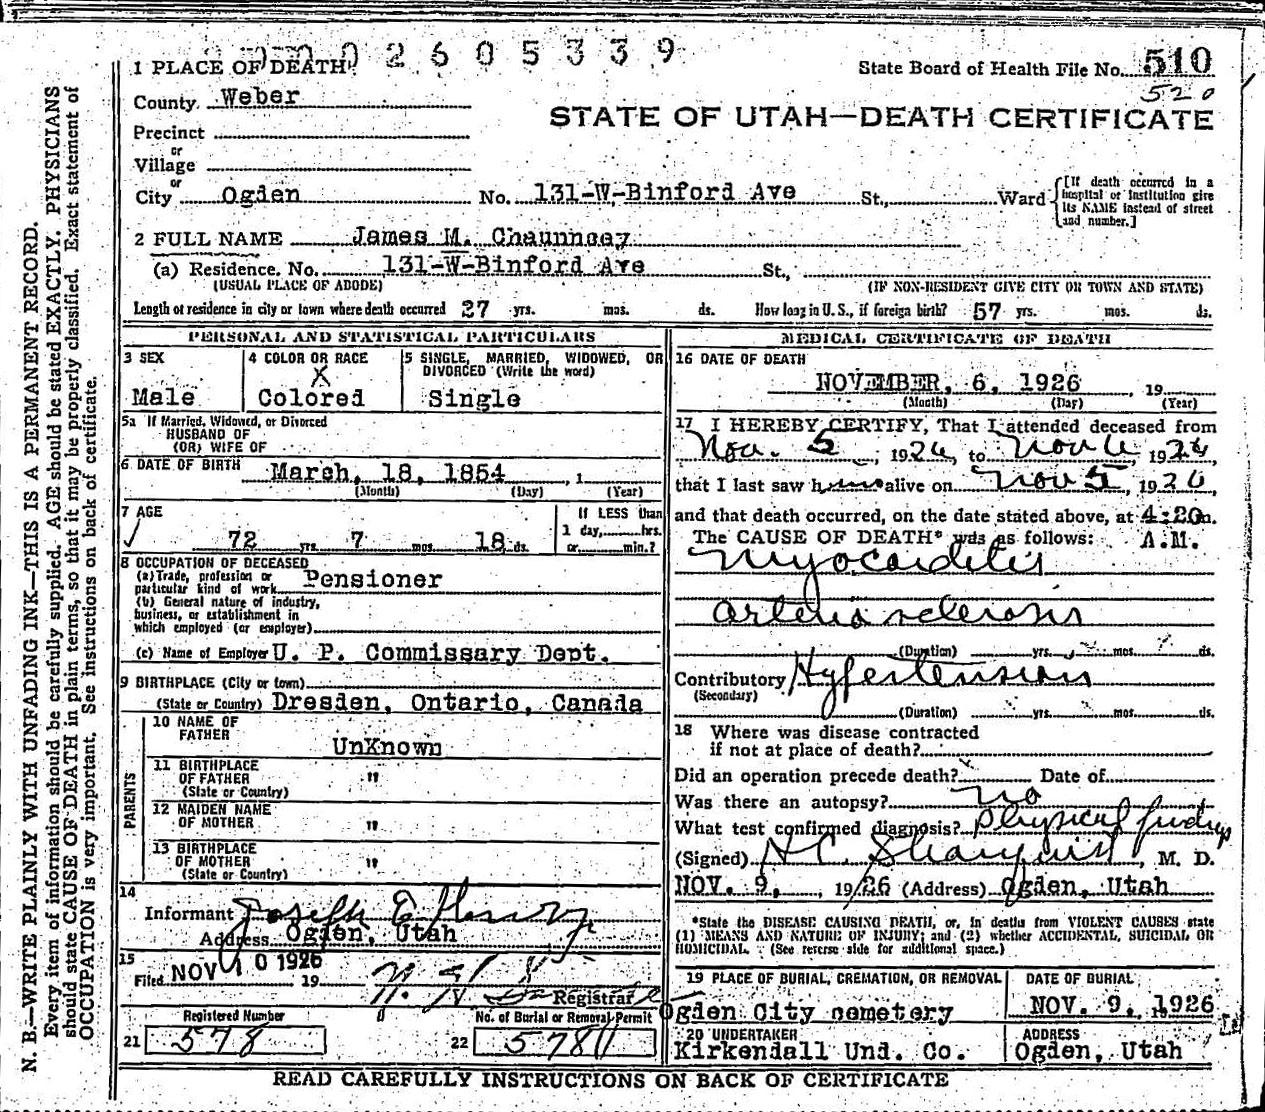 2605339
1 PLACE OF DEATH
State Board of Health File No. 510
520
County Weber
STATE OF UTAH—DEATH CERTIFICATE
Precinct
or
Village
or
City Ogden No. 131-W-Binford Ave St., Ward [If death occurred in a hospital or institution give its NAME instead of street and number.]
2 FULL NAME James M. Chaunncey
(a) Residence. No. 131-W-Binford Ave St.,
(USUAL PLACE OF ABODE) (IF NON-RESIDENT GIVE CITY OR TOWN AND STATE)
Length of residence in city or town where death occurred 27 yrs. mos. ds. How long in U. S., if foreign birth? 57 yrs. mos. ds.
PERSONAL AND STATISTICAL PARTICULARS
3 SEX
Male
4 COLOR OR RACE
X
Colored
5 SINGLE, MARRIED, WIDOWED, OR
DIVORCED (Write the word)
Single
5a If Married, Widowed, or Divorced
HUSBAND OF
(OR) WIFE OF
6 DATE OF BIRTH March, 18, 1854, 1
(Month) (Day) (Year)
7 AGE
72 yrs. 7 mos. 18 ds.
If LESS than
1 day, hrs.
or min.?
8 OCCUPATION OF DECEASED
(a) Trade, profession or
particular kind of work Pensioner
(b) General nature of industry,
business, or establishment in
which employed (or employer)
(c) Name of Employer U. P. Commissary Dept.
9 BIRTHPLACE (City or town)
(State or Country) Dresden, Ontario, Canada
PARENTS
10 NAME OF
FATHER
UnKnown
11 BIRTHPLACE
OF FATHER "
(State or Country)
12 MAIDEN NAME
OF MOTHER "
13 BIRTHPLACE
OF MOTHER "
(State or Country)
14
Informant Joseph E Henry
Address Ogden, Utah
15
Filed NOV 10 1926 19
Registrar
Registered Number
21 578
No. of Burial or Removal Permit
22 5781
MEDICAL CERTIFICATE OF DEATH
16 DATE OF DEATH
NOVEMBER, 6, 1926, 19
(Month) (Day) (Year)
17 I HEREBY CERTIFY, That I attended deceased from
Nov. 5, 1926, to Nov 6, 1926
that I last saw him alive on Nov 5, 1926,
and that death occurred, on the date stated above, at 4:20 m.
The CAUSE OF DEATH* was as follows: A.M.
Myocarditis
Arteriosclerosis
(Duration) yrs. mos. ds.
Contributory Hypertension
(Secondary)
(Duration) yrs. mos. ds.
18 Where was disease contracted
if not at place of death?
Did an operation precede death? Date of
Was there an autopsy? no
What test confirmed diagnosis? Physical findings
(Signed) H.C. Stranquist, M. D.
NOV. 9, 19/26 (Address) Ogden, Utah
*State the DISEASE CAUSING DEATH, or, in deaths from VIOLENT CAUSES state
(1) MEANS AND NATURE OF INJURY; and (2) whether ACCIDENTAL, SUICIDAL OR
HOMICIDAL. (See reverse side for additional space.)
19 PLACE OF BURIAL, CREMATION, OR REMOVAL
Ogden City cemetery
DATE OF BURIAL
NOV. 9, 1926
20 UNDERTAKER
Kirkendall Und. Co.
ADDRESS
Ogden, Utah
READ CAREFULLY INSTRUCTIONS ON BACK OF CERTIFICATE
N. B.—WRITE PLAINLY WITH UNFADING INK—THIS IS A PERMANENT RECORD.
Every item of information should be carefully supplied. AGE should be stated EXACTLY. PHYSICIANS
should state CAUSE OF DEATH in plain terms, so that it may be properly classified. Exact statement of
OCCUPATION is very important. See instructions on back of certificate.